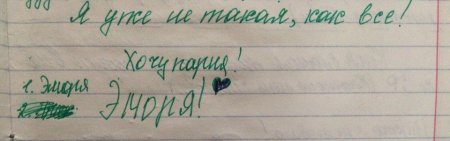 Я уже не такая, как все!
Хочу парня!
1. Эмаря
Эмаря!